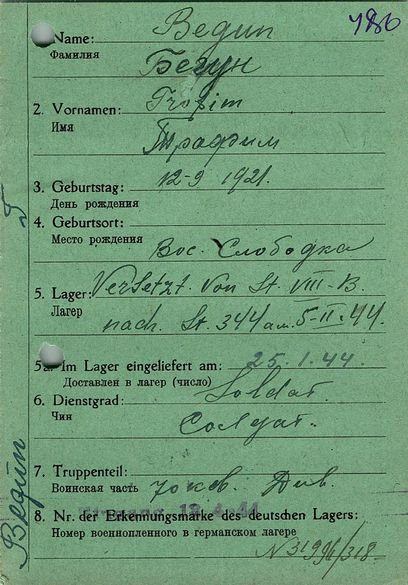 486
Name: Begun
Фамилия
Бегун
2. Vornamen: Trofim
Имя
Трафим
3. Geburtstag: 12-9 1921.
День рождения
4. Geburtsort:
Место рождения
Вос. Слободка
5. Lager: Versetzt. von St. VIII-B.
Лагер
nach. St. 344 am. 5-II-44.
5a. Im Lager eingeliefert am: 25.1.44.
Доставлен в лагер (число)
6. Dienstgrad: Soldat.
Чин
Солдат.
7. Truppenteil:
Воинская часть Див.
8. Nr. der Erkennungsmarke des deutschen Lagers:
Номер военнопленного в германском лагере
Begun